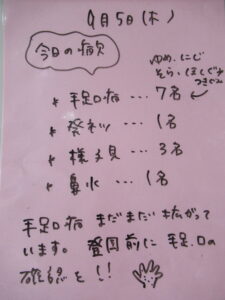 9月5日(木)
今日の病欠
ゆめ、にじ
そら、ほしぐみ
つきぐみ
* 手足口病 … 7名
* 発ネツ … 1名
* 様子見 … 3名
* 鼻水 … 1名
手足口病 まだまだ拡がって
います。登園前に手足、口の
確認を!!